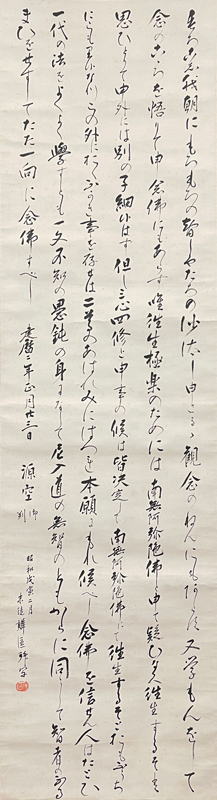 もろこし我朝にもろもろの智しやたちの沙汰し申さるゝ觀念のねんにもあらす又学もんをして
念の心を悟りて申念佛にもあらす唯往生極楽のためには南無阿弥陀佛と申て疑ひなく往生するそと
思ひとりて申外には別の子細候はす但し三心四修と申事の候は皆決定して南無阿弥陀佛にて往生するそと思ふうち
にこもり候なりこの外におくふかき事を存せは二尊のあはれみにはつれ本願にもれ候へし念佛を信せん人はたとひ
一代の法をよくよく學すとも一文不知の愚鈍の身になして尼入道の無智のともからに同うして智者のふる
まひをせすしてたた一向に念佛すへし
建暦二年正月廿三日 源空
昭和戊寅二月